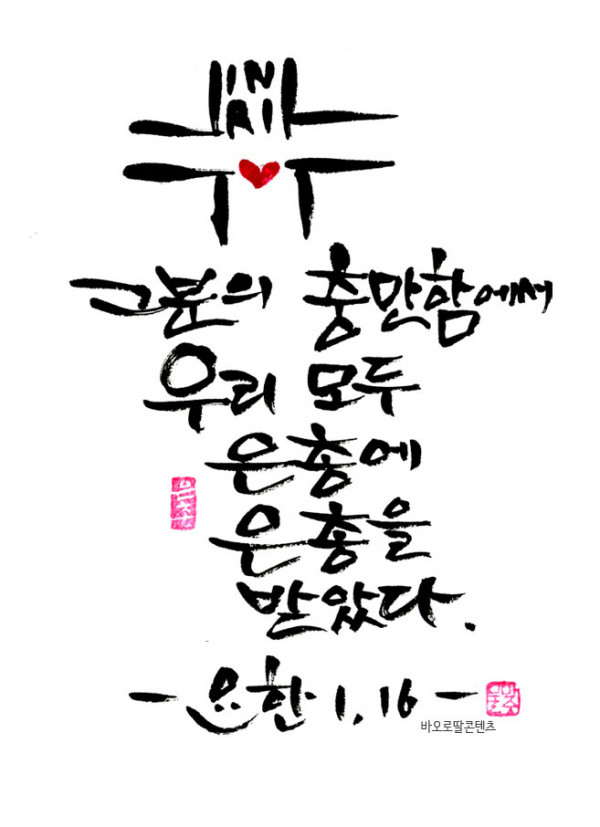 IN
RI
그분의 충만함에서
우리 모두
은총에
은총을
받았다.
- 요한 1, 16 -
바오로딸콘텐츠